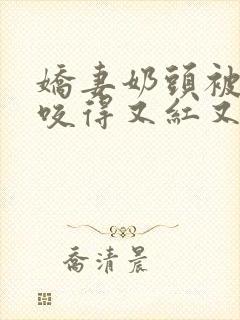 嬌妻奶頭被
咬得又紅又
喬清晨